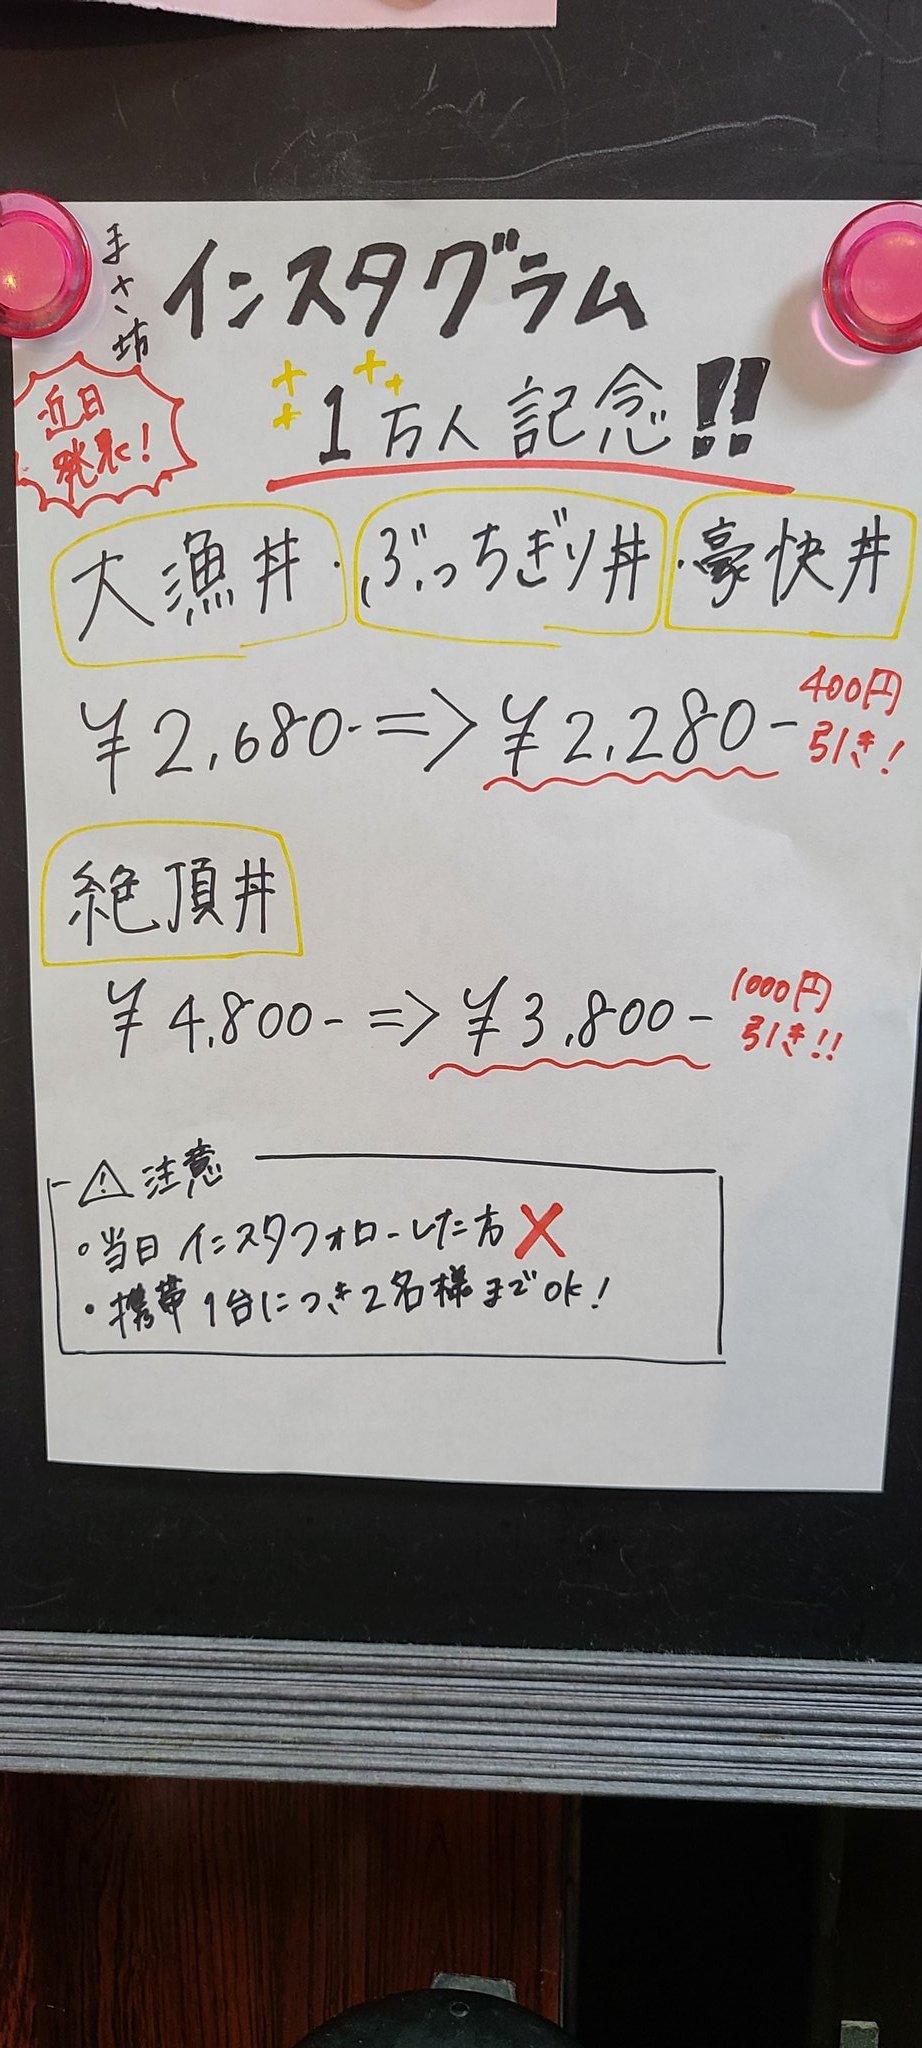 まさ坊
インスタグラム
近日
発表!
1万人記念!!
大漁丼・ぶっちぎり丼・豪快丼
¥2,680-=>¥2,280-
400円
引き!
絶頂丼
¥4,800-=>¥3,800-
1000円
引き!!
⚠注意
・当日インスタフォローした方×
・携帯1台につき2名様までOK!